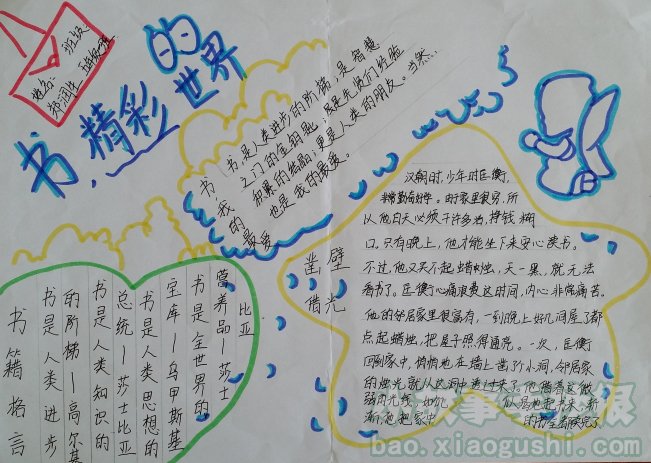 班级
姓名:
书,精彩的世界
书,我的最爱
书是人类进步的阶梯,是智慧
之门的金钥匙;既是先贤们经验
积累的结晶;更是人类的朋友。当然…
也是我的最爱。
凿壁
借光
汉朝时,少年时匡衡,
非常勤奋好学。由于家里很穷,所
以他白天必须干许多活,挣钱糊
口。只有晚上,他才能坐下来安心读书。
不过,他又买不起蜡烛,天一黑,就无法
看书了。匡衡心痛浪费这时间,内心非常痛苦。
他的邻居家里很富有,一到晚上好几间屋子都
点起蜡烛,把屋子照得通亮。一次,匡衡
回到家中,悄悄地在墙上凿了个小洞,邻居家
的烛光就从这洞中透过来了。他借着这微
弱的光线,如
渐渐地把家中
书籍格言
书是人类进步
的阶梯—高尔基
书是人类知识的
总统—莎士比亚
书是人类思想的
宝库—乌申斯基
书是全世界的
营养品—莎士
比亚
bao.xiaogushi.com